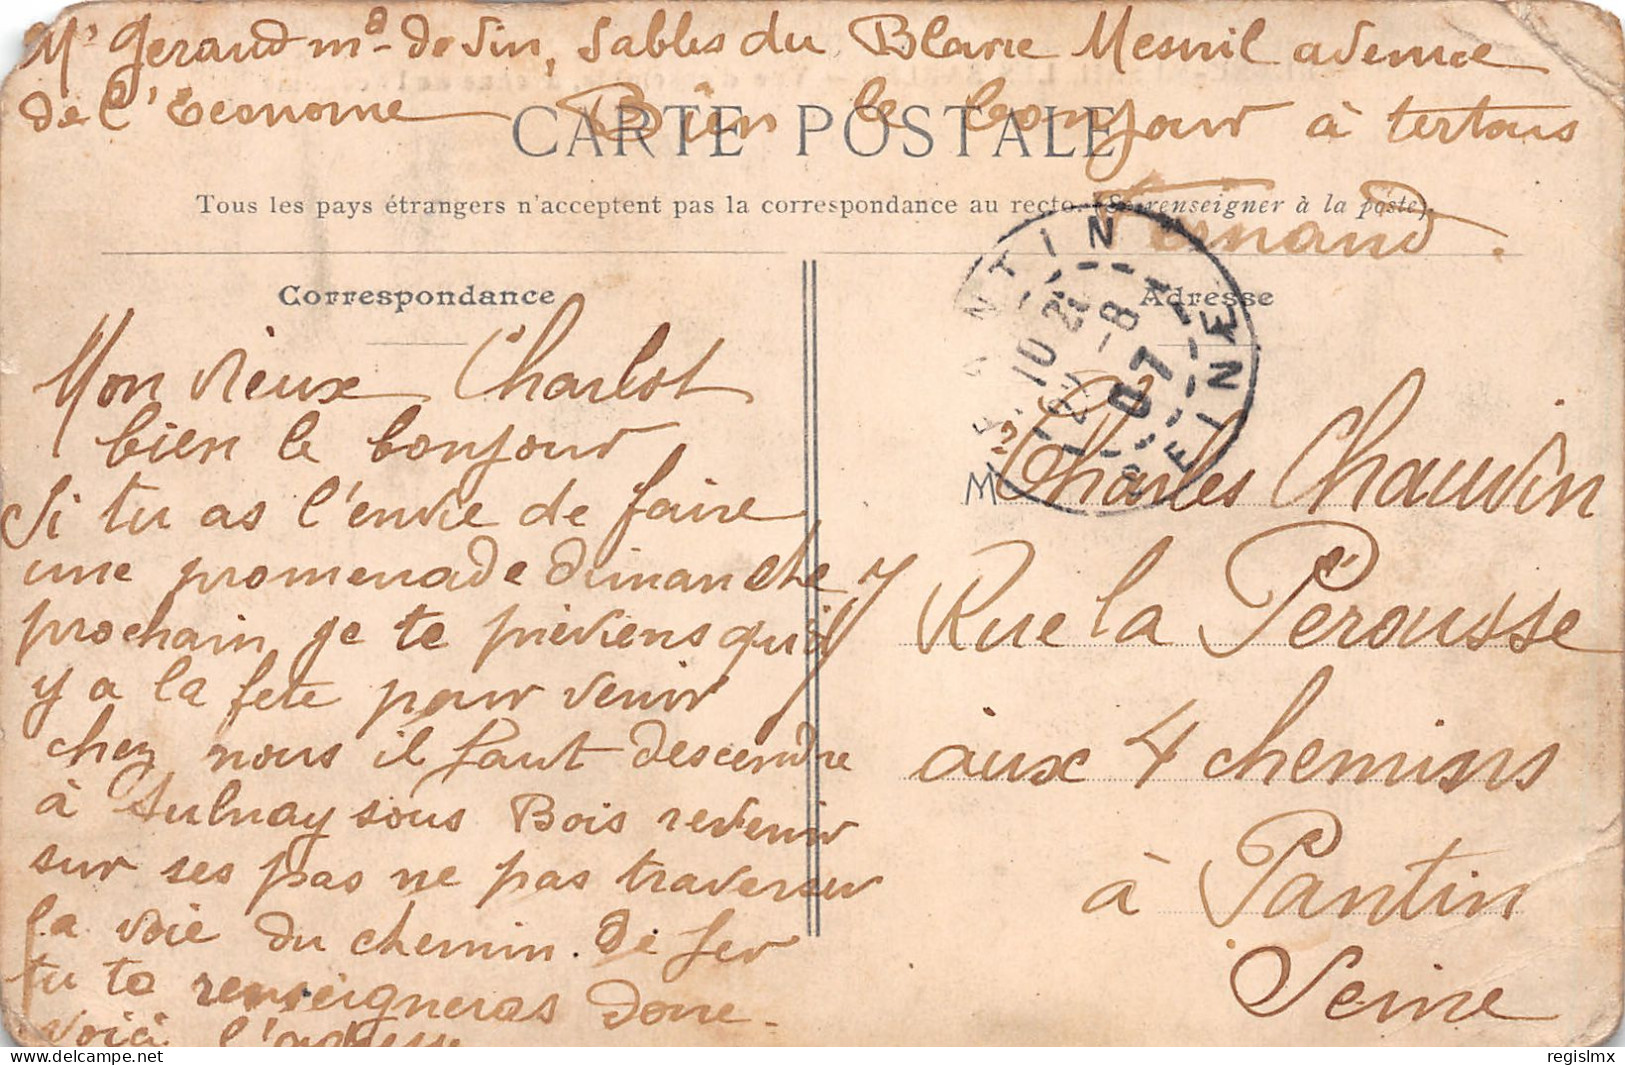 Mr Geraud md de vin, Sables du Blanc Mesnil avenue
de l'Econome Bien le bonjour à tertous
CARTE POSTALE
Tous les pays étrangers n'acceptent pas la correspondance au recto. (Se renseigner à la poste).
Fernand.
Correspondance
Mon vieux Charlot
bien le bonjour
Si tu as l'envie de faire
une promenade dimanche
prochain je te préviens qu'il
y a la fete pour venir
chez nous il faut descendre
à Aulnay sous Bois revenir
sur ses pas ne pas traverser
la voie du chemin de fer
tu te renseigneras donc
voici l'adresse
PANTIN
10
8
07
SEINE
Adresse
Mr Charles Chauvin
7 Rue la Pérousse
aux 4 chemins
à Pantin
Seine
regislmx